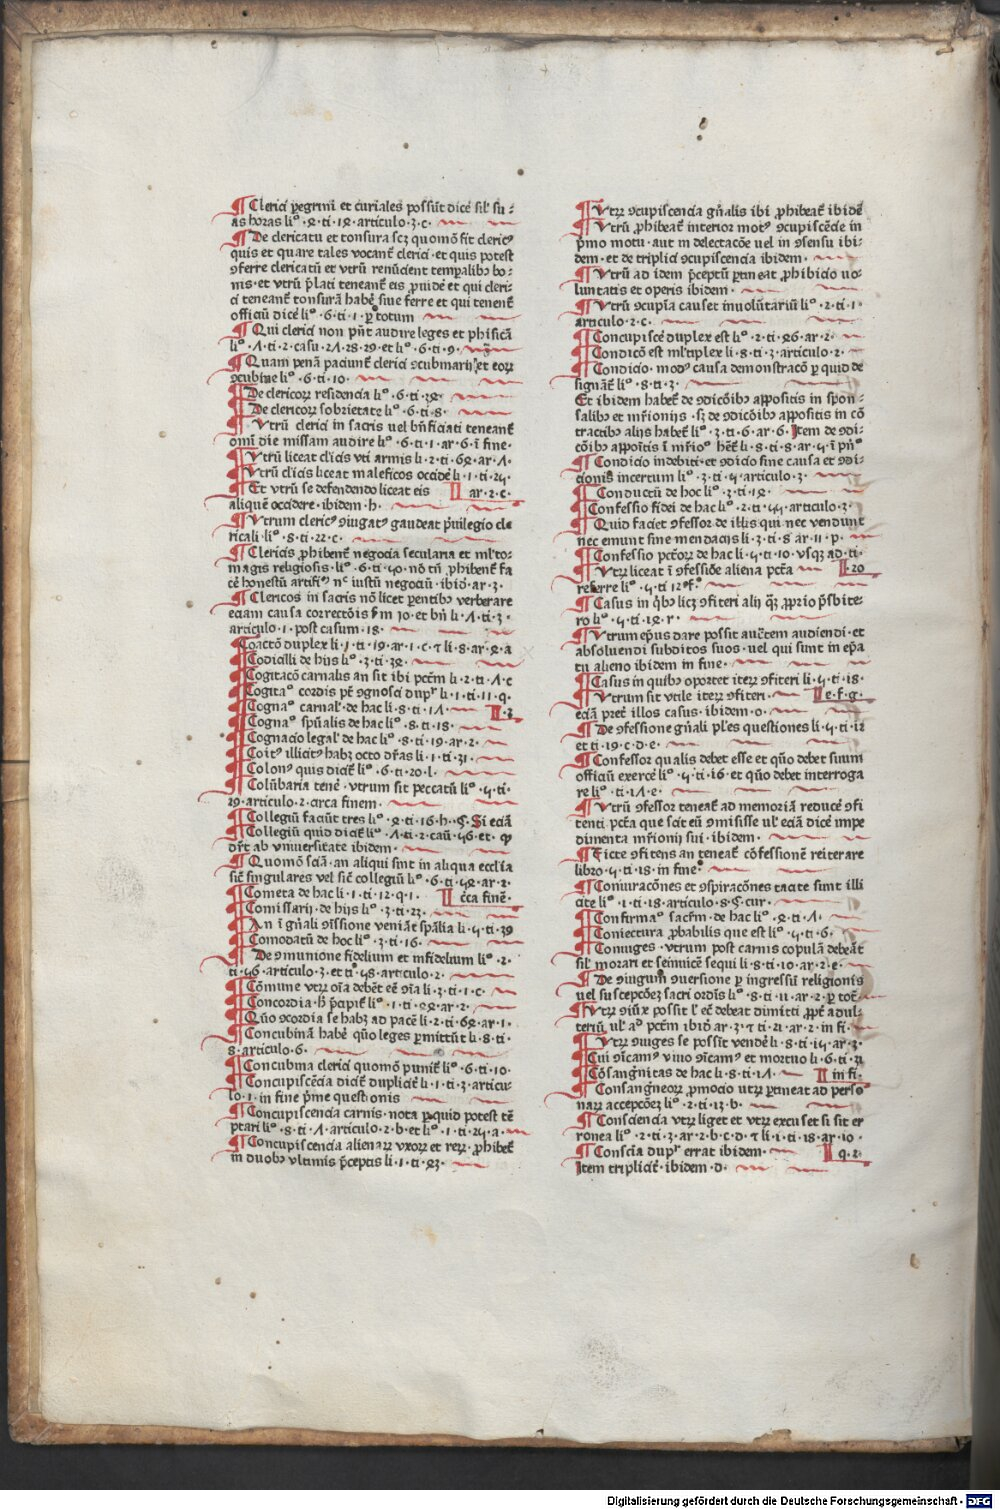 Clerici peregrini et curiales possūt dicē sil' su⸗
as horas li° ·ꝛ· ti·1ꝛ· articulo·3·c·
De clericatu et tonsura scꝫ quomō fit cleric⁹
quis et quare tales vocant̄ clerici·et quis potest
ꝯferre clericatū et vtrū renūcient temꝑalibꝫ bo⸗
nis·et vtrū p̄lati teneant̄ eis ꝓuidē et qui cleri⸗
ci teneant̄ tonsurā habē siue ferre et qui tenent̄
officiū dicē li° ·6·ti·1·ꝑ totum
Qui clerici non pn̄t audire leges et phisicā
li° ·Λ·ti·2·casu·2Λ·28·29·et li° ·6·ti·9·
Quam penā paciunt̄ clerici ꝯcubinarij et eoꝝ
ꝯcubine li° ·6·ti·10·
De clericoꝝ residencia li° ·6·ti·3ꝛ·
De clericoꝝ sobrietate li° ·6·ti·8·
Vtrū clerici in sacris vel bn̄ficiati teneant̄
omī die missam audire li° ·6·ti·1·ar·6·ī fine·
Vtrū liceat cl'icis vti armis li·2·ti·6ꝛ·ar·Λ·
Vtrū cl'icis liceat maleficos occidē li·1·ti·2ꝗ·
Et vtrū se defendendo liceat eis ar·2·c·
aliquē occidere·ibidem·h·
Vtrum cleric⁹ ꝯiugat⁹ gaudeat p̄uilegio cle
ricali·li° ·8·ti·22·c·
Clericis ꝓhibent̄ negocia secularia et ml'to⸗
magis religiosis·li° ·6·ti·ꝗ0·nō tn̄ ꝓhibent̄ fa
cē honestū artific̄ nᶜ iustū negociū·ibid̄·ar·3·
Clericos in sacris nō licet ꝑentibꝫ verberare
eciam causa correctōis ẜm jo·et bn̄ li·Λ·ti·3·
articulo·1·post casum·18·
Coactō duplex li·1·ti·19·ar·1·c·ꞇ li·8·ar·ꝛ·a
Codicilli de hijs li° ·3·ti·3ꝛ·
Cogitacō carnalis an sit ibi pctm̄ li·2·ti·Λ·c
Cogita° cordis pt̄ ꝯgnosci dupl'r li·1·ti·11·q·
Cogna° carnal' de hac li·8·ti·1Λ· ·ꝛ
Cogna° spūalis de hac li° ·8·ti·18·
Cognacio legal' de hac li° ·8·ti·19·ar·2·
Coit⁹ illicit⁹ habꝫ octo dr̄as li·1·ti·31·
Colon⁹ quis dicit̄ li° ·6·ti·20·l·
Colūbaria tenē·vtrum sit peccatū li° ·ꝗ·ti·
29·articulo·2·circa finem·
Collegiū faciūt tres li° ·ꝛ·ti·16·h·Ꞔ·Si eciā
Collegiū quid dicit̄ li° ·Λ·ti·2·caū·ꝗ6·et·ꝙ
dr̄t ab vniuersitate ibidem·
Quomō sciā·an aliqui sint in aliqua eccl'ia
sic̄ singulares vel sic̄ collegiū li° ·6·ti·ꝗꝛ·ar·2·
Cometa de hac li·1·ti·12·q·1· c̄ca finē·
Comissarij·de hijs li° ·3·ti·23·
An ī gn̄ali ꝯissione veniāt spālia li·ꝗ·ti·39
Comodatū de hoc li° ·3·ti·16·
De ꝯmunione fidelium et infidelium li° ·2·
ti·ꝗ6·articulo·3·et ti·ꝗ8·articulo·2·
Cōmune vtꝝ oīa debēt eē ꝯīa li·3·ti·1·c·
Concordia·h̄ p̄cipit̄ li° ·1·ti·ꝛꝛ·ar·2·
Qūo ꝯcordia se habꝫ ad pacē li·2·ti·6ꝛ·ar·1·
Concubinā habē qūo leges ꝑmittūt li·8·ti·
8·articulo·6·
Concubina clerici quomō punit̄ li° ·6·ti·10·
Concupiscēcia dicit̄ duplicit̄ li·1·ti·3·articu⸗
lo·1·in fine p̄me questionis
Concupiscencia carnis·nota ꝑquid potest tē
ptari li° ·8·ti·Λ·articulo·2·b·et li° ·1·ti·2ꝗ·a·
Concupiscencia alienaꝝ vxoꝝ et reꝝ·ꝓhibet̄
in duobꝫ vltimis p̄ceptis li·1·ti·ꝛ3·
Vtꝝ ꝯcupiscencia gn̄alis ibi ꝓhibeat̄ ibidē
Vtrū ꝓhibeat̄ interior mot⁹ ꝯcupiscēcie in
p̄mo motu·aut in delectacōe uel in ꝯsensu ibi⸗
dem·et de triplici ꝯcupiscencia ibidem·
Vtrū ad idem p̄ceptū ꝑtineat ꝓhibicio uo⸗
luntatis et operis ibidem·
Vtrū ꝯcupīa causet inuolūtariū li° ·2·ti·1·
articulo·2·c·
Concupiscē duplex est li° ·2·ti·ꝛ6·ar·2·
Condicō est ml'tiplex li·8·ti·3·articulo·2·
Condicio·mod⁹ causa demonstracō ꝑ quid de
signāt̄ li° ·8·ti·3·
Et ibidem habet̄ de ꝯdicōibꝫ appositis in spon⸗
salibꝫ et mr̄ionijs·sꝫ de ꝯdicōibꝫ appositis in cō
tractibꝫ alijs habet̄ li° ·3·ti·6·ar·6·Item de ꝯdi⸗
cōibꝫ appoītis ī mr̄io° hēt̄ li·8·ti·8·ar·ꝗ·ī pn°
Condicio indebiti·et ꝯdicio sine causa et ꝯdi⸗
cionis incertum li° ·3·ti·ꝗ·articulo·3·
Conductū de hoc li° ·3·ti·1ꝛ·
Confessio fidei de hac li° ·2·ti·ꝗꝗ·articulo·3·
Quid faciet ꝯfessor de illis qui nec vendunt
nec emunt sine mendacijs li·3·ti·8·ar·11·p·
Confessio pctōꝝ de hac li·ꝗ·ti·10·vsqꝫ ad·ti·
Vtꝝ liceat ī ꝯfessiōe aliena pctā 20
referre li° ·ꝗ·ti·12·ef·
Casus in qͥbꝫ licꝫ ꝯfiteri alij qͣꝫ ꝓprio p̄sbite⸗
ro li° ·ꝗ·ti·1ꝛ·r·
Vtrum ep̄us dare possit auct̄em audiendi·et
absoluendi subditos suos·uel qui sunt in ep̄a
tu alieno ibidem in fine·
Casus in quibꝫ oportet iteꝝ ꝯfiteri li·ꝗ·ti·18·
Vtrum sit vtile iteꝝ ꝯfiteri· e·f·g·
eciā pret̄ illos casus·ibidem·o·
De ꝯfessione gn̄ali pl'es questiones li·ꝗ·ti·12
et ti·19·c·d·e·
Confessor qualis debet esse et qūo debet suum
officiū exercē li° ·ꝗ·ti·16·et qūo debet interroga
re li° ·ti·1Λ·e·
Vtrū ꝯfessor teneat̄ ad memoriā reducē ꝯfi
tenti pctā que scit eū ꝯmisisse ul' eciā dicē impe
dimenta mr̄ionij sui·ibidem·
Ficte ꝯfitens an teneat̄ cōfessionē reiterare
libro·ꝗ·ti·18·in fine·
Coniuracōnes et ꝯspiracōnes tacite sunt illi
cite li° ·1·ti·18·articulo·8·Ꞔ·cur·
Confirma° sacr̄m·de hac li° ·ꝛ·ti·Λ·
Coniectura ꝓbabilis que est li° ·ꝗ·ti·6·
Coniuges·vtrum post carnis copulā debeāt
sil' morari et seinuicē sequi li·8·ti·10·ar·2·e·
De ꝯiugum ꝯuersione ꝑ ingressū religionis
uel suscepcōeꝫ sacri ordīs li° ·8·ti·11·ar·2·ꝑ totū
Vtꝝ ꝯiūx possit l' ec̄ debeat dimitti ꝓpt̄ adul⸗
teriū ul' ad pctm̄ ibid̄ ar·3·ꞇ ti·21·ar·2·in fi·
Vtꝝ ꝯiuges se possit vendē li·8·ti·1ꝗ·ar·3·
Cui ꝯīcam⁹ viuo ꝯīcam⁹ et mortuo li·6·ti·21
Cōsangūitas de hac li·8·ti·1Λ· in fi·
Consangneoꝝ ꝓmocio vtꝝ ꝑtineat ad perso
naꝝ accepcōeꝫ li° ·2·ti·13·b·
Consciencia vtꝝ liget et vtꝝ excuset si sit er
ronea li° ·2·ti·3·ar·2·b·c·d·ꞇ li·1·ti·18·ar·10·
Conscīa dupl'r errat ibidem· q·2·
Item triplicit̄·ibidem·d·
Digitalisierung gefördert durch die Deutsche Forschungsgemeinschaft - DFG